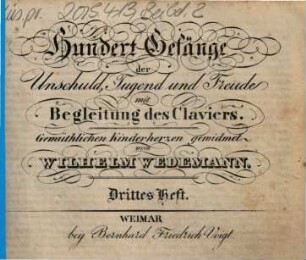 2015 413, Beibd. 2
Hundert Gesänge
der
Unschuld, Tugend und Freude
mit
Begleitung des Claviers.
Gemüthlichen Kinderherzen gewidmet
von
WILHELM WEDEMANN.
Drittes Heft.
WEIMAR
bey Bernhard Friedrich Voigt.